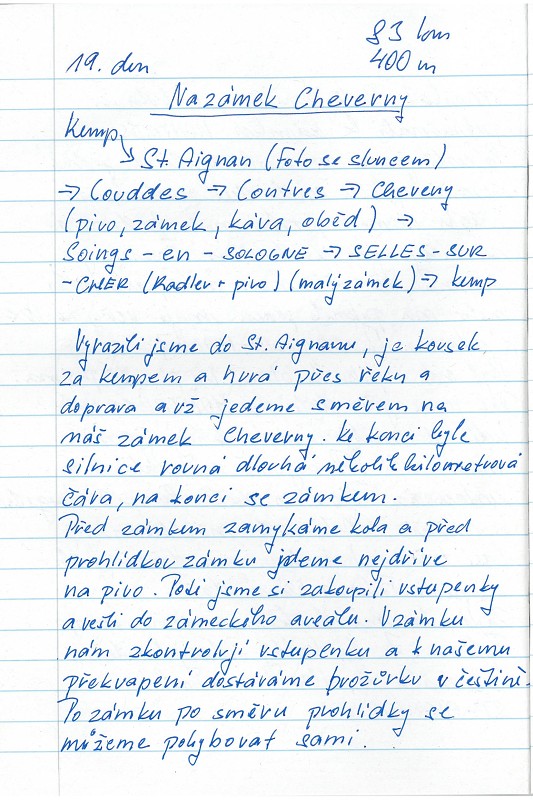 83 km
19. den 400 m
Na zámek Cheverny
Kemp
→ St. Aignan (Foto se sluncem)
→ Couddes → Contres → Cheveny
(pivo, zámek, káva, oběd) →
Soings - en - SOLOGNE → SELLES - SUR
- CHER (Radler + pivo) (malý zámek) → kemp
Vyrazili jsme do St. Aignanu, je kousek
za kempem a hurá přes řeku a
doprava a už jedeme směrem na
náš zámek Cheverny. Ke konci byla
silnice rovná dlouhá několik kilometrová
čára, na konci se zámkem.
Před zámkem zamykáme kola a před
prohlídkou zámku jdeme nejdříve
na pivo. Poté jsme si zakoupili vstupenky
a vešli do zámeckého areálu. U zámku
nám zkontrolují vstupenku a k našemu
překvapení dostáváme brožůrku v češtině.
Po zámku po směru prohlídky se
můžeme pohybovat sami.